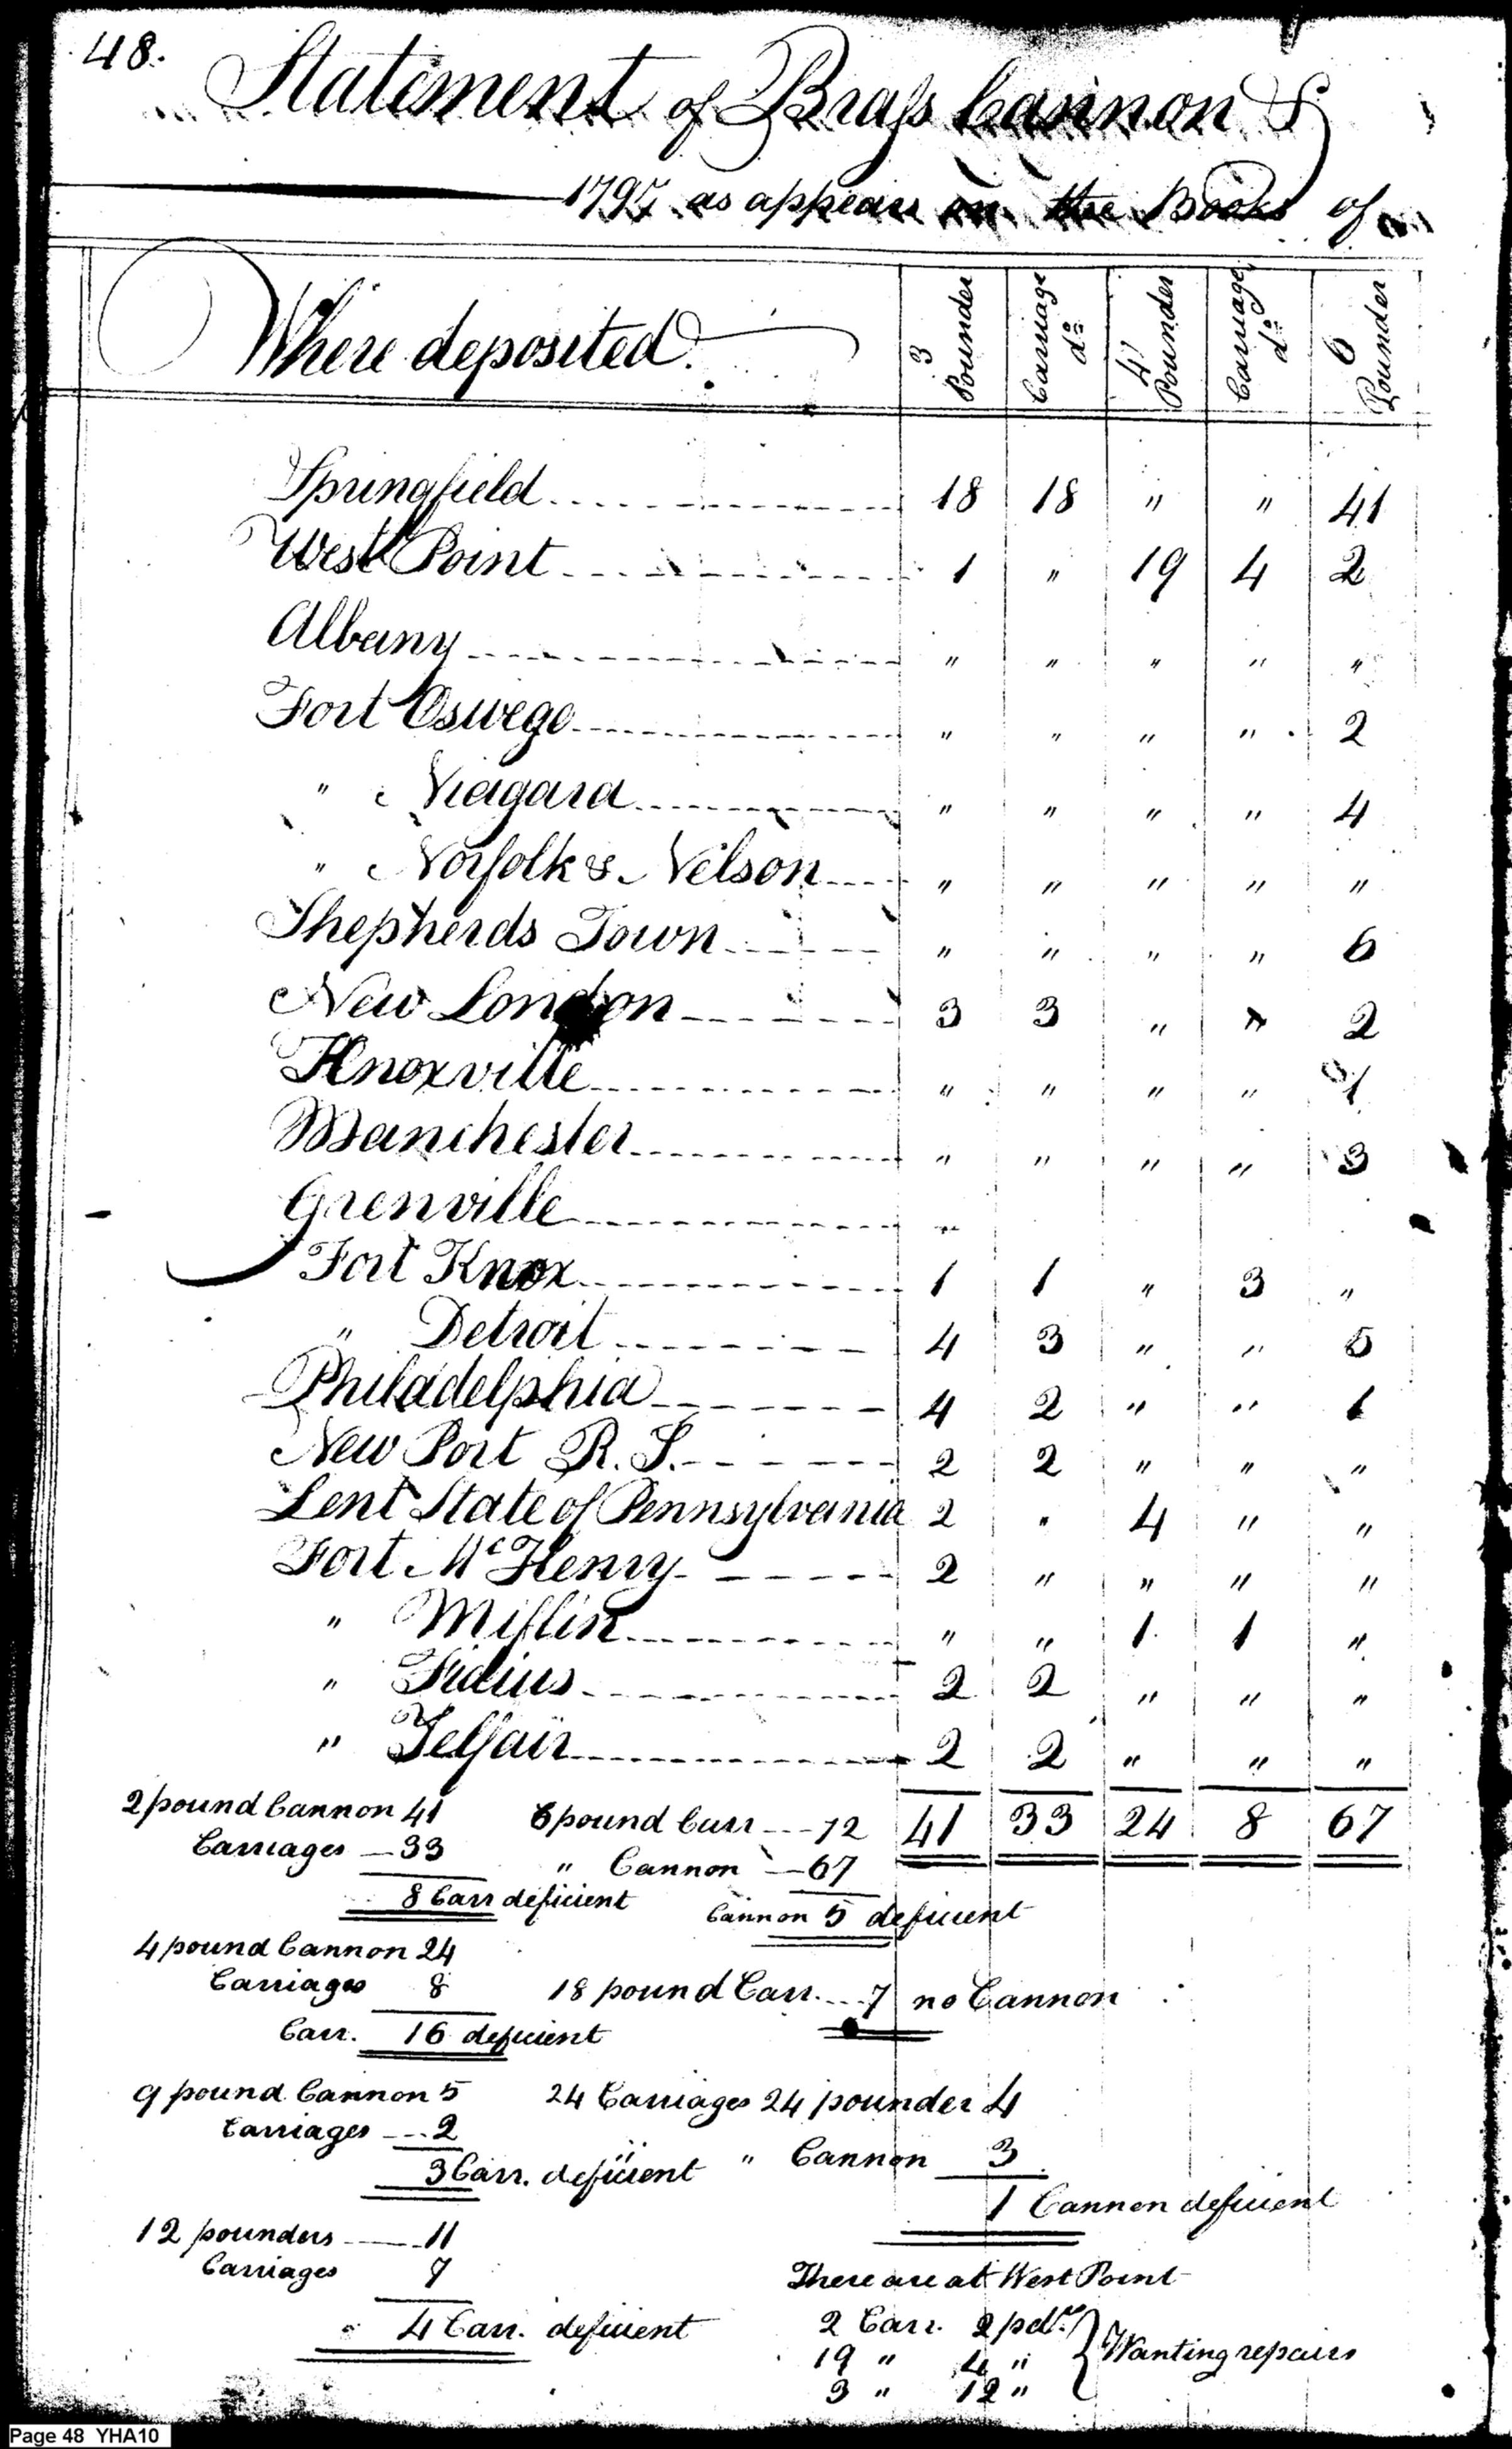 48.
Statement of Brass Cannon &
1797. as appears on the Books of
Where deposited. 3 Pounder Carriage do. 4 Pounder Carriage do. 6 Pounder
Springfield 18 18 " " 41
West Point 1 " 19 4 2
Albany " " " " "
Fort Oswego " " " " 2
" Niagara " " " " 4
" Norfolk & Nelson " " " " "
Shepherds Town " " " " 6
New London 3 3 " " 2
Knoxville " " " " 1
Manchester " " " " 3
Grenville "
Fort Knox 1 1 " 3 "
" Detroit 4 3 " " 5
Philadelphia 4 2 " " 1
New Port R. I. 2 2 " " "
Lent State of Pennsylvania 2 " 4 " "
Fort McHenry 2 " " " "
" Mifflin " " 1 1 "
" Fidius 2 2 " " "
" Telfair 2 2 " " "
41 33 24 8 67
2 pound Cannon 41 6 pound Carr 72
Carriages 33 " Cannon 67
8 Carr deficient Cannon 5 deficient
4 pound Cannon 24
Carriages 8 18 pound Carr. 7 no Cannon
Carr. 16 deficient
9 pound Cannon 5 24 Carriages 24 pounder 4
Carriages 2 " Cannon 3
3 Carr. deficient 1 Cannon deficient
12 pounders 11
Carriages 7 There are at West Point
4 Carr. deficient 2 Carr. 2 pdr.
19 " 4 " Wanting repairs
3 " 12 "
Page 48 YHA10